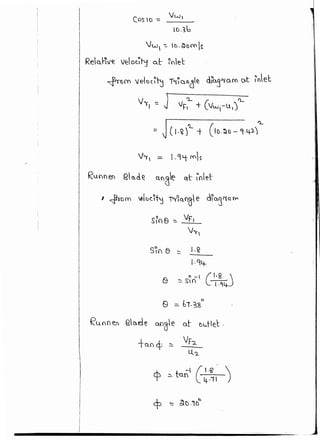 Cos 10 = Vω₁
10.36
Vω₁ = 10.20 m|s
Relative velocity at inlet
from velocity Triangle diagram at inlet
Vr₁ = √ VF₁² + (Vω₁-u₁)²
= √ (1.8)² + (10.20 - 9.42)²
Vr₁ = 1.94 m|s
Runnen Blade angle at inlet
from velocity Triangle diagram
Sinθ = VF₁
Vr₁
Sin θ = 1.8
1.94
θ = Sin⁻¹ (1.8/1.94)
θ = 67.38°
Runnen Blade angle at outlet.
tanϕ = VF₂
u₂
ϕ = tan⁻¹ (1.8/4.71)
ϕ = 20.70°